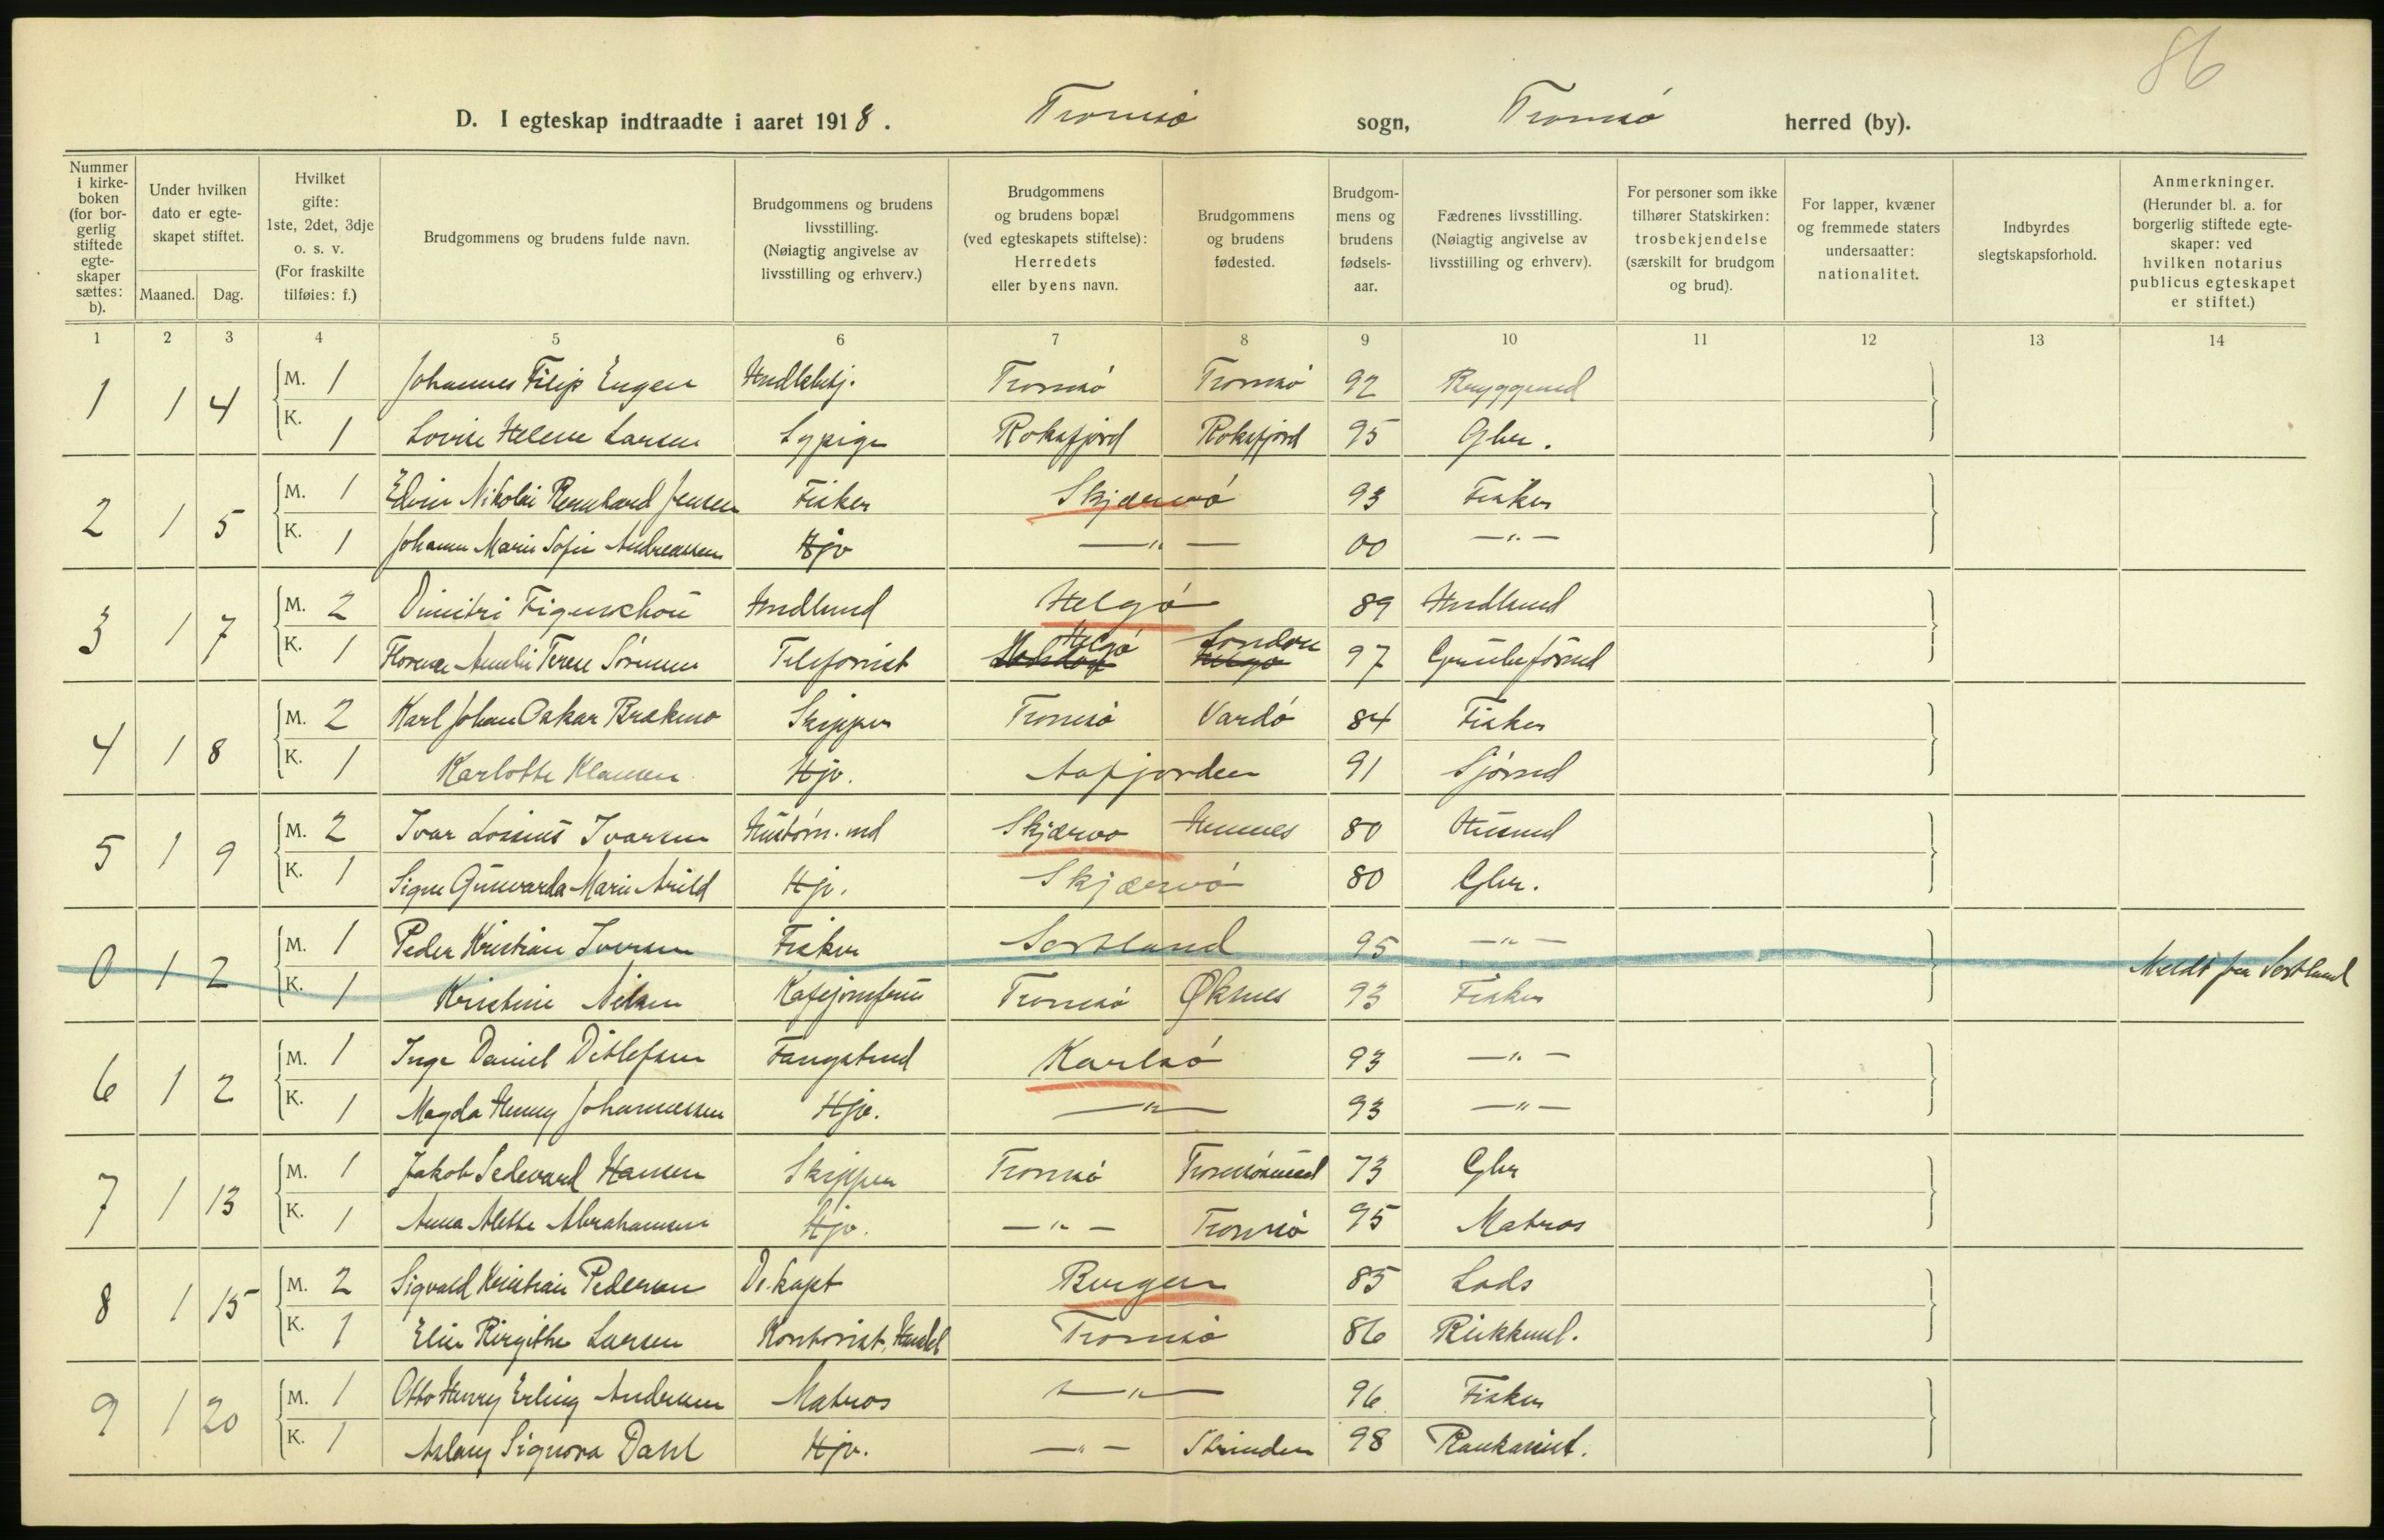 86
D. I egteskap indtraadte i aaret 1918. Tromsø sogn, Tromsø herred (by).
Nummer i kirkeboken (for borgerlig stiftede egteskaper sættes: b).
Under hvilken dato er egteskapet stiftet.
Maaned. Dag.
Hvilket gifte: 1ste, 2det, 3dje o. s. v. (For fraskilte tilføies: f.)
Brudgommens og brudens fulde navn.
Brudgommens og brudens livsstilling. (Nøiagtig angivelse av livsstilling og erhverv.)
Brudgommens og brudens bopæl (ved egteskapets stiftelse): Herredets eller byens navn.
Brudgommens og brudens fødested.
Brudgommens og brudens fødselsaar.
Fædrenes livsstilling. (Nøiagtig angivelse av livsstilling og erhverv).
For personer som ikke tilhører Statskirken: trosbekjendelse (særskilt for brudgom og brud).
For lapper, kvæner og fremmede staters undersaatter: nationalitet.
Indbyrdes slegtskapsforhold.
Anmerkninger. (Herunder bl. a. for borgerlig stiftede egteskaper: ved hvilken notarius publicus egteskapet er stiftet.)
1 2 3 4 5 6 7 8 9 10 11 12 13 14
1 1 4 M. 1 Johannes Filip Engen Hndlsbtj. Tromsø Tromsø 92 Bryggemd
K. 1 Lovise Helene Larsen Sypige Roksfjord Roksfjord 95 Gbr.
2 1 5 M. 1 Edvin Nikolai Bernhard Jensen Fisker Skjærvø 93 Fisker
K. 1 Johanne Marie Sofie Andreassen Hjv —"— 00 —"—
3 1 7 M. 2 Dimitri Figenschou Hndlsmd Helgø 89 Hndlsmd
K. 1 Florence Amelie Terese Sørensen Telefonist Helgø London 97 Grubeformd
4 1 8 M. 2 Karl Johan Oskar Brekmo Skipper Tromsø Vardø 84 Fisker
K. 1 Karlotte Klausen Hjv. Aafjorden 91 Sjømd
5 1 9 M. 2 Ivar Losius Ivarsen Hustøm.md Skjærvø Hemnes 80 Husmd
K. 1 Signe Gunvarda Marie Arild Hjv. Skjærvø 80 Gbr.
0 1 2 M. 1 Peder Kristian Iversen Fisker Sortland 95 —"— Meldt fra Sortland
K. 1 Kristine Nilsen Kafejomfru Tromsø Øksnes 93 Fisker
6 1 2 M. 1 Inge Daniel Ditlefsen Fangstmd Karlsø 93 —"—
K. 1 Magda Henny Johannessen Hjv. —"— 93 —"—
7 1 13 M. 1 Jakob Sedevard Hansen Skipper Tromsø Tromsøsund 73 Gbr
K. 1 Anna Alette Abrahamsen Hjv. —"— Tromsø 95 Matros
8 1 15 M. 2 Sigvald Kristian Pedersen D.kapt Bergen 85 Lods
K. 1 Elise Birgithe Larsen Kontorist, Handel Tromsø 86 Blikksml.
9 1 20 M. 1 Otto Henry Erling Andersen Matros —"— 96 Fisker
K. 1 Aslaug Signora Dahl Hjv. —"— Strinden 98 Bankassist.